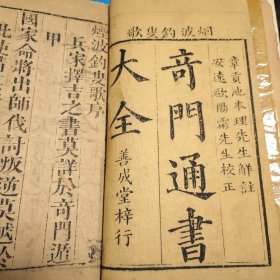 烟波釣叟歌
章貢池本理先生解註
安遠歐陽霖先生校正
奇門通書
大全
善成堂梓行
烟波釣叟歌序
兵家擇吉之書莫詳於奇門遁
甲
國家命將出師伐叛逆莫